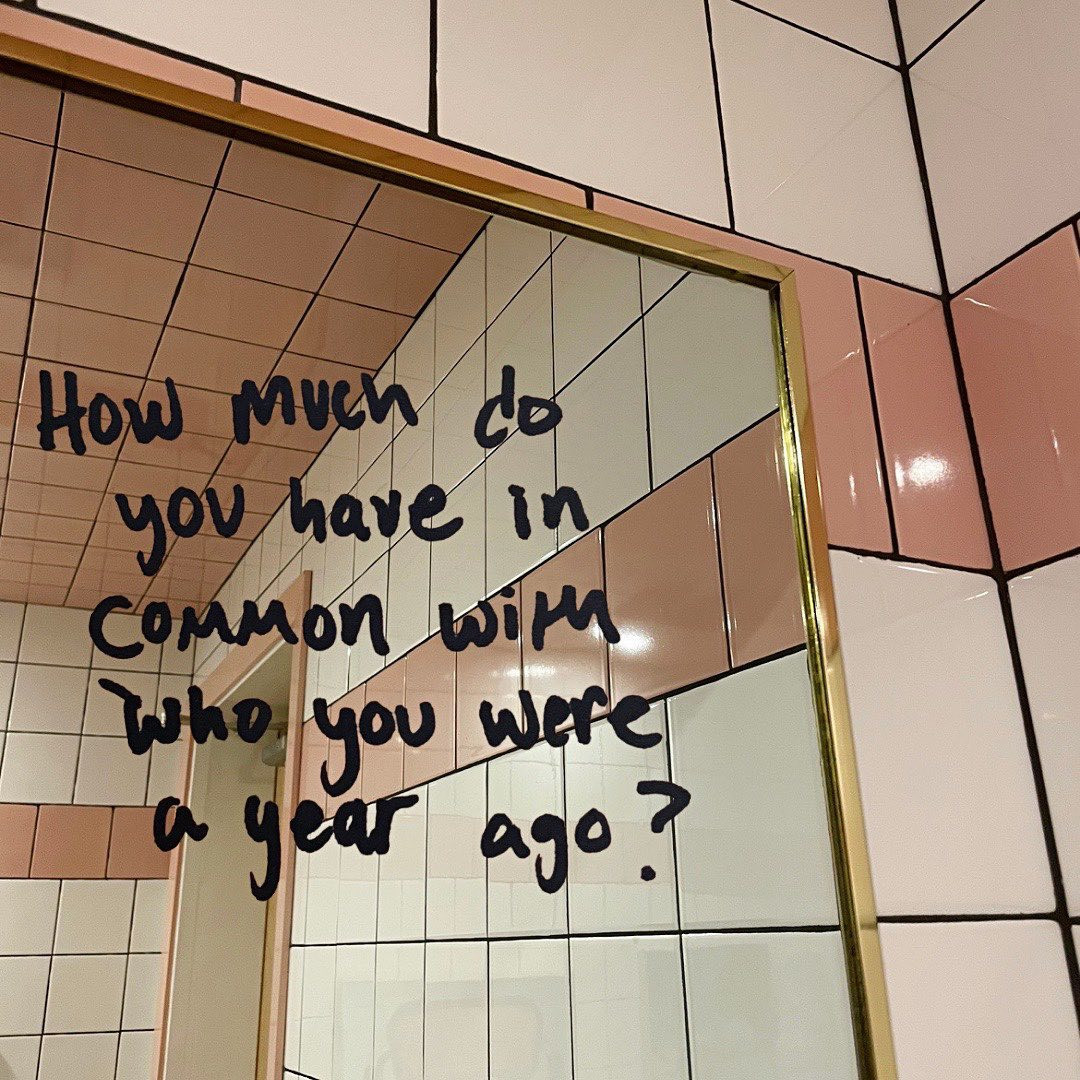 How much do
you have in
common with
who you were
a year ago?